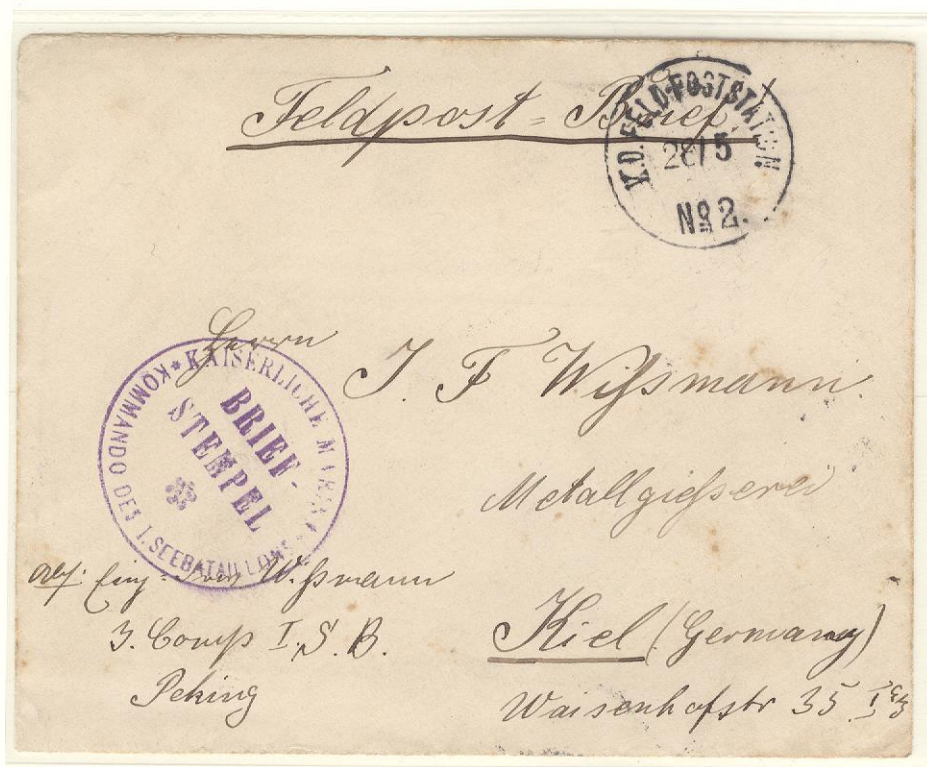 Feldpost = Brief
K.D. FELD-POSTSTATION
28/5
No 2.
Herrn
J. F Wißmann
Metallgießerei
Kiel (Germany)
Waisenhofstr 35
* KAISERLICHE MARINE *
KOMMANDO DES I. SEEBATAILLONS
BRIEF-
STEMPEL
Abs: Einj. Wißmann
3. Comp I. S. B.
Peking